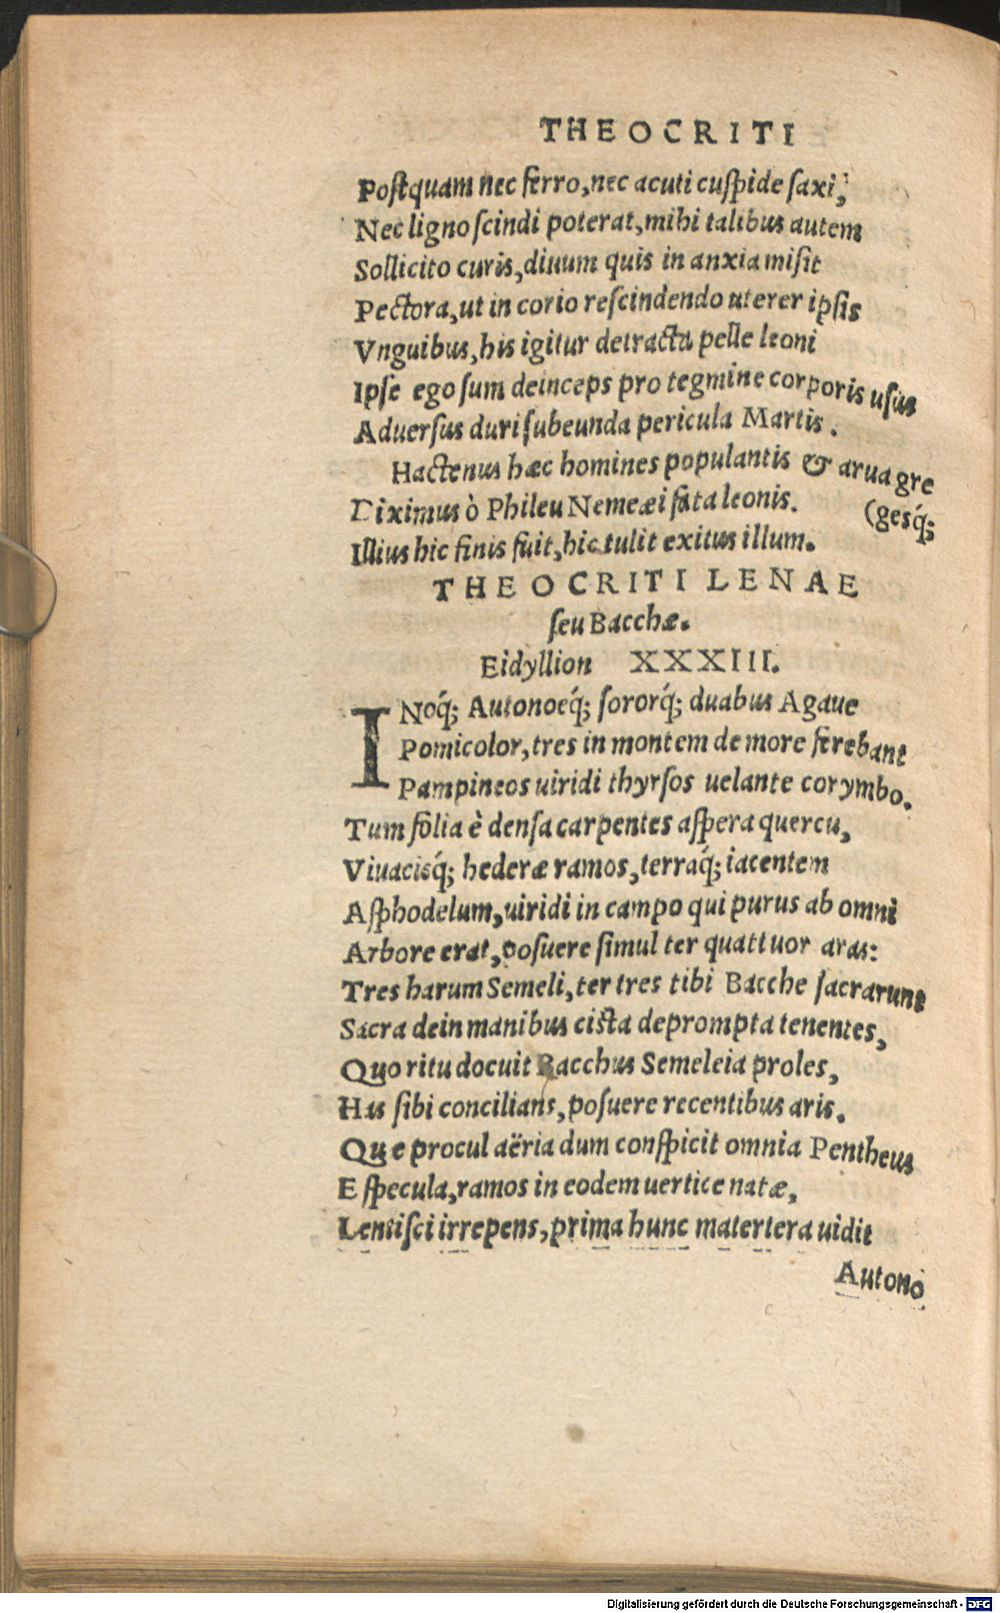 THEOCRITI
Postquam nec ferro, nec acuti cuspide saxi,
Nec ligno scindi poterat, mihi talibus autem
Sollicito curis, diuum quis in anxia misit
Pectora, ut in corio rescindendo uterer ipsis
Vnguibus, his igitur detracta pelle leoni
Ipse ego sum deinceps pro tegmine corporis usus
Aduersus duri subeunda pericula Martis.
Hactenus hæc homines populantis & arua gre
Diximus ò Phileu Nemeæi fata leonis. (gesq́;
Illius hic finis fuit, hic tulit exitus illum.
THEOCRITI LENAE
seu Bacchæ.
Eidyllion XXXIII.
INoq́; Autonoeq́; sororq́; duabus Agaue
Pomicolor, tres in montem de more ferebant
Pampineos uiridi thyrsos uelante corymbo.
Tum folia è densa carpentes aspera quercu,
Viuacisq́; hederæ ramos, terraq́; iacentem
Asphodelum, uiridi in campo qui purus ab omni
Arbore erat, posuere simul ter quattuor aras:
Tres harum Semeli, ter tres tibi Bacche sacrarunt
Sacra dein manibus cista deprompta tenentes,
Quo ritu docuit Bacchus Semeleia proles,
Has sibi concilians, posuere recentibus aris.
Que procul aëria dum conspicit omnia Pentheus
E specula, ramos in eodem uertice natæ,
Lentisci irrepens, prima hunc matertera uidit
Autono
Digitalisierung gefördert durch die Deutsche Forschungsgemeinschaft - DFG